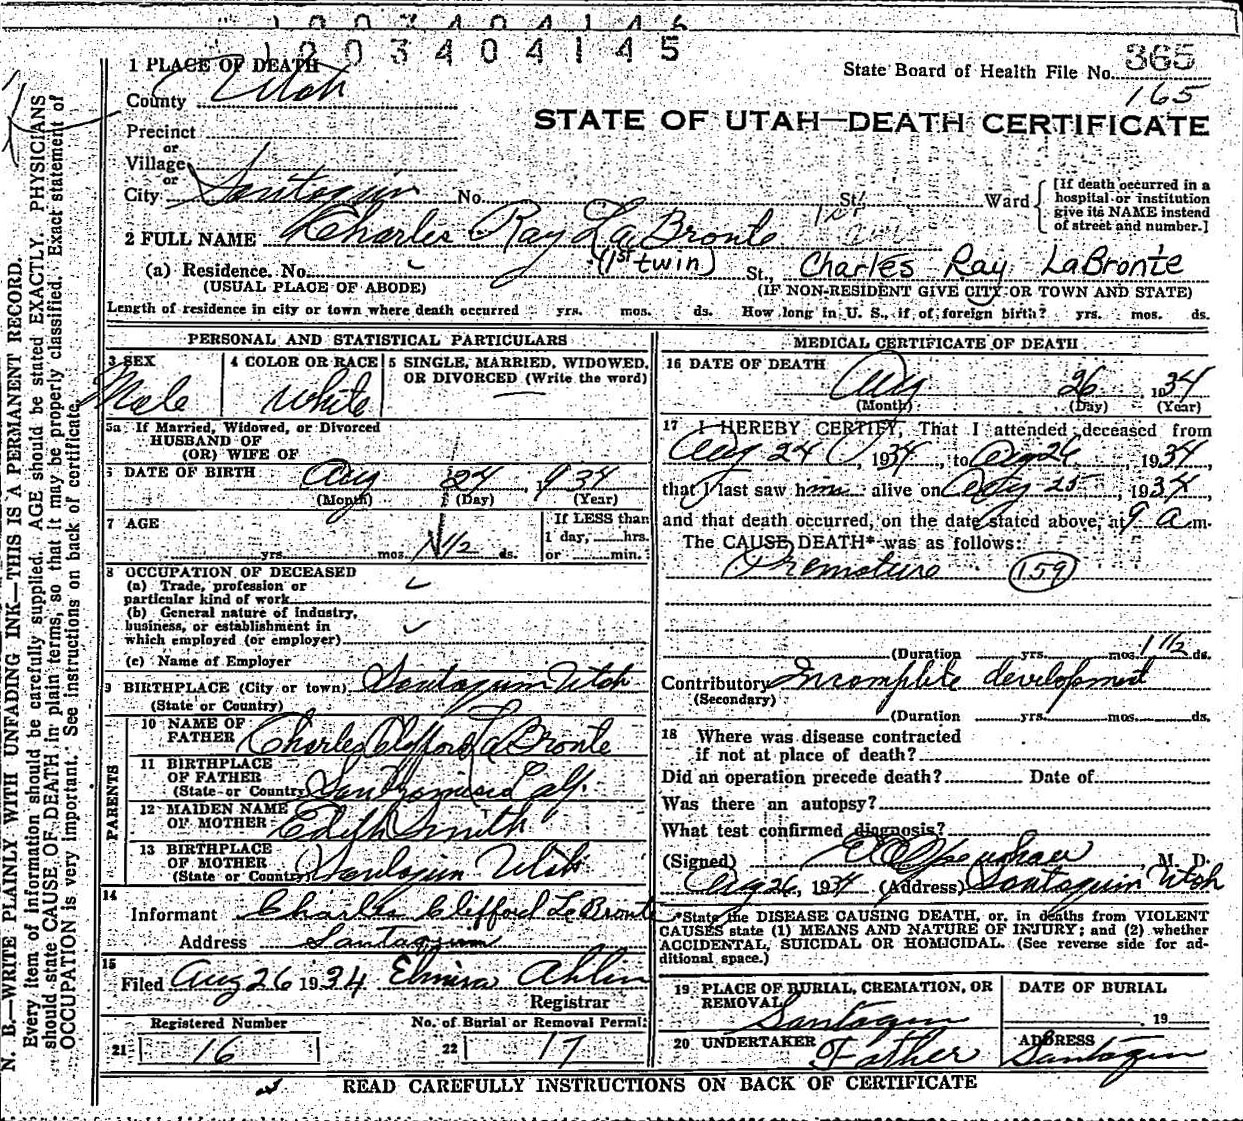 1003404146
1003404145
1 PLACE OF DEATH
County Utah
State Board of Health File No. 365
165
STATE OF UTAH—DEATH CERTIFICATE
Precinct
or
Village
or
City Santaquin No. St. Ward
[If death occurred in a
hospital or institution
give its NAME instead
of street and number.]
2 FULL NAME Charles Ray LaBronte
(1st twin)
(a) Residence. No. St., Charles Ray LaBronte
(USUAL PLACE OF ABODE) (IF NON-RESIDENT GIVE CITY OR TOWN AND STATE)
Length of residence in city or town where death occurred yrs. mos. ds. How long in U. S., if of foreign birth? yrs. mos. ds.
PERSONAL AND STATISTICAL PARTICULARS
3 SEX
Male
4 COLOR OR RACE
White
5 SINGLE, MARRIED, WIDOWED,
OR DIVORCED (Write the word)
5a If Married, Widowed, or Divorced
HUSBAND OF
(OR) WIFE OF
6 DATE OF BIRTH Aug 24 1934
(Month) (Day) (Year)
7 AGE
yrs. mos. 1 1/2 ds.
If LESS than
1 day, hrs.
or min.
8 OCCUPATION OF DECEASED
(a) Trade, profession or
particular kind of work
(b) General nature of industry,
business, or establishment in
which employed (or employer)
(c) Name of Employer
9 BIRTHPLACE (City or town) Santaquin Utah
(State or Country)
PARENTS
10 NAME OF
FATHER Charles Clifford LaBronte
11 BIRTHPLACE
OF FATHER
(State or Country) San Francisco Calf.
12 MAIDEN NAME
OF MOTHER Edith Smith
13 BIRTHPLACE
OF MOTHER
(State or Country) Santaquin Utah
14
Informant Charles Clifford LaBronte
Address Santaquin
15
Filed Aug 26 1934 Elmira Ahlin
Registrar
Registered Number No. of Burial or Removal Permit
21 16 22 17
MEDICAL CERTIFICATE OF DEATH
16 DATE OF DEATH
Aug 26 1934
(Month) (Day) (Year)
17 I HEREBY CERTIFY, That I attended deceased from
Aug 24, 1934, to Aug 26, 1934,
that I last saw him alive on Aug 25, 1934
and that death occurred, on the date stated above, at 9 a m.
The CAUSE DEATH* was as follows:
Premature 159
(Duration yrs. mos. 1 1/2 ds.
Contributory Incomplete development
(Secondary)
(Duration yrs. mos. ds.
18 Where was disease contracted
if not at place of death?
Did an operation precede death? Date of
Was there an autopsy?
What test confirmed diagnosis?
(Signed) M. D.
Aug 26, 1934 (Address) Santaquin Utah
*State the DISEASE CAUSING DEATH, or, in deaths from VIOLENT
CAUSES state (1) MEANS AND NATURE OF INJURY; and (2) whether
ACCIDENTAL, SUICIDAL OR HOMICIDAL. (See reverse side for ad-
ditional space.)
19 PLACE OF BURIAL, CREMATION, OR
REMOVAL
Santaquin
DATE OF BURIAL
, 19
20 UNDERTAKER
Father
ADDRESS
Santaquin
READ CAREFULLY INSTRUCTIONS ON BACK OF CERTIFICATE
N. B.—WRITE PLAINLY WITH UNFADING INK—THIS IS A PERMANENT RECORD.
Every item of information should be carefully supplied. AGE should be stated EXACTLY. PHYSICIANS
should state CAUSE OF DEATH in plain terms, so that it may be properly classified. Exact statement of
OCCUPATION is very important. See instructions on back of certificate.